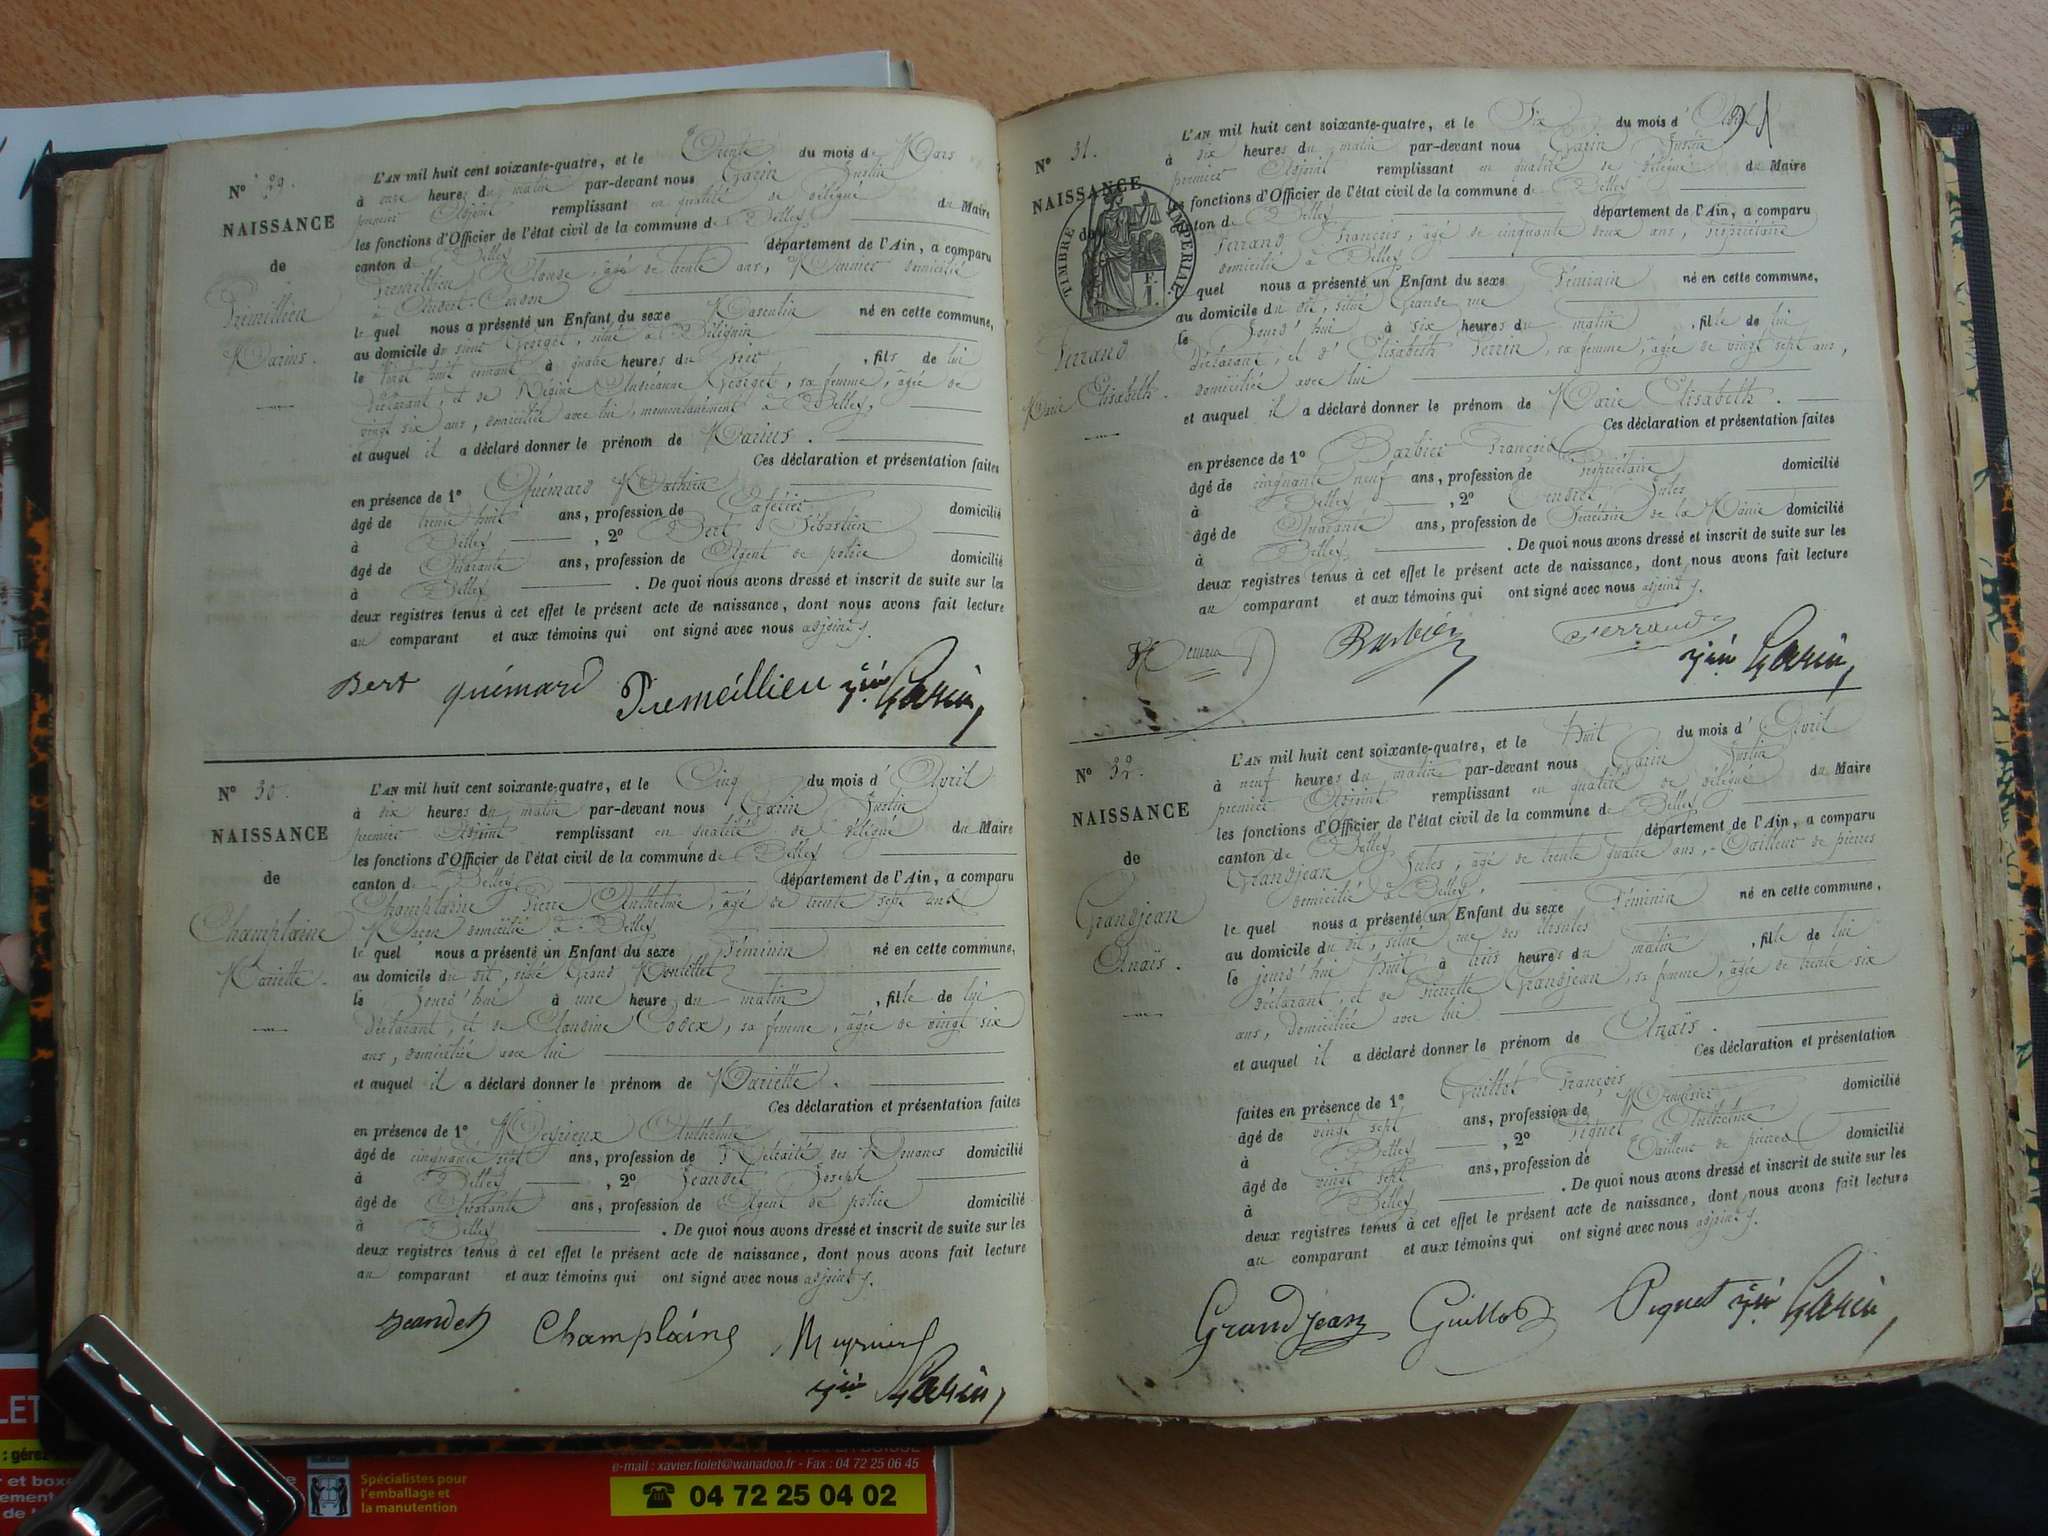 N° 29.
NAISSANCE
de
Prémillieu
Marius.
L'AN mil huit cent soixante-quatre, et le Trente du mois de Mars
à onze heures du matin par-devant nous Garin Justin
premier Adjoint remplissant en qualité de délégué du Maire
les fonctions d'Officier de l'état civil de la commune de Belley
canton de Belley département de l'Ain, a comparu
Premillieu Claude, âgé de trente ans, Meunier domicilié
à Andert-Condon
le quel nous a présenté un Enfant du sexe Masculin né en cette commune,
au domicile du sieur Georget, situé à Billignin
le vingt huit courant à quatre heures du soir, fils de lui
déclarant, et de Régine Andréanne Georget, sa femme, âgée de
vingt six ans, domiciliée avec lui, momentanément à Belley,
et auquel il a déclaré donner le prénom de Marius.
Ces déclaration et présentation faites
en présence de 1° Quémard Mathurin
âgé de trente huit ans, profession de Cafetier domicilié
à Belley, 2° Bert Sébastien
âgé de Quarante ans, profession de Agent de police domicilié
à Belley. De quoi nous avons dressé et inscrit de suite sur les
deux registres tenus à cet effet le présent acte de naissance, dont nous avons fait lecture
au comparant et aux témoins qui ont signé avec nous adjoint
Bert quémard Premeillieu Garin
N° 30.
NAISSANCE
de
Champlaine
Mariette.
L'AN mil huit cent soixante-quatre, et le Cinq du mois d'Avril
à dix heures du matin par-devant nous Garin Justin
premier Adjoint remplissant en qualité de délégué du Maire
les fonctions d'Officier de l'état civil de la commune de Belley
canton de Belley département de l'Ain, a comparu
Champlaine Pierre Anthelme, âgé de trente sept ans
Maçon domicilié à Belley
le quel nous a présenté un Enfant du sexe Féminin né en cette commune,
au domicile du dit, situé Grand
le Jourd'hui à une heure du matin, fille de lui
déclarant, et de Claudine Codex, sa femme, âgée de vingt six
ans, domiciliée avec lui
et auquel il a déclaré donner le prénom de Mariette.
Ces déclaration et présentation faites
en présence de 1° Anthelme
âgé de cinquante sept ans, profession de Retraité des Douanes domicilié
à Belley, 2° Jeandet Joseph
âgé de Quarante ans, profession de Agent de police domicilié
à Belley. De quoi nous avons dressé et inscrit de suite sur les
deux registres tenus à cet effet le présent acte de naissance, dont nous avons fait lecture
au comparant et aux témoins qui ont signé avec nous adjoint
Jeandet Champlaine
Garin
N° 31.
NAISSANCE
de
TIMBRE IMPERIAL
Ferrand
Marie Elisabeth.
L'AN mil huit cent soixante-quatre, et le Six du mois d'Avril
à dix heures du matin par-devant nous Garin Justin
premier Adjoint remplissant en qualité de délégué du Maire
les fonctions d'Officier de l'état civil de la commune de Belley
canton de Belley département de l'Ain, a comparu
Ferrand François, âgé de cinquante deux ans, propriétaire
domicilié à Belley
quel nous a présenté un Enfant du sexe Féminin né en cette commune,
au domicile du dit, situé Grande rue
le Jourd'hui à six heures du matin, fille de lui
déclarant, et d'Elisabeth Perrin, sa femme, âgée de vingt sept ans,
domiciliée avec lui
et auquel il a déclaré donner le prénom de Marie Elisabeth.
Ces déclaration et présentation faites
en présence de 1° Barbier François
âgé de cinquante neuf ans, profession de Propriétaire domicilié
à Belley, 2° Jules
âgé de Quarante ans, profession de Secrétaire de la Mairie domicilié
à Belley. De quoi nous avons dressé et inscrit de suite sur les
deux registres tenus à cet effet le présent acte de naissance, dont nous avons fait lecture
au comparant et aux témoins qui ont signé avec nous adjoint
Barbier Ferrand
Garin
N° 32.
NAISSANCE
de
Grandjean
Anaïs.
L'AN mil huit cent soixante-quatre, et le Huit du mois d'Avril
à neuf heures du matin par-devant nous Garin Justin
premier Adjoint remplissant en qualité de délégué du Maire
les fonctions d'Officier de l'état civil de la commune de Belley
canton de Belley département de l'Ain, a comparu
Grandjean Jules, âgé de trente quatre ans, Tailleur de pierres
domicilié à Belley,
le quel nous a présenté un Enfant du sexe Féminin né en cette commune,
au domicile du dit, situé rue des Ursules
le jourd'hui huit à trois heures du matin, fille de lui
déclarant, et de Pierrette Grandjean, sa femme, âgée de trente six
ans, domiciliée avec lui
et auquel il a déclaré donner le prénom de Anaïs.
Ces déclaration et présentation
faites en présence de 1° Guillot François
âgé de vingt sept ans, profession de Menuisier domicilié
à Belley, 2° Piquet Anthelme
âgé de vingt sept ans, profession de Tailleur de pierres domicilié
à Belley. De quoi nous avons dressé et inscrit de suite sur les
deux registres tenus à cet effet le présent acte de naissance, dont nous avons fait lecture
au comparant et aux témoins qui ont signé avec nous adjoint
Grandjean Guillot Piquet Garin
e-mail : xavier.fiolet@wanadoo.fr - Fax : 04 72 25 06 45
Spécialistes pour
l'emballage et
la manutention
04 72 25 04 02